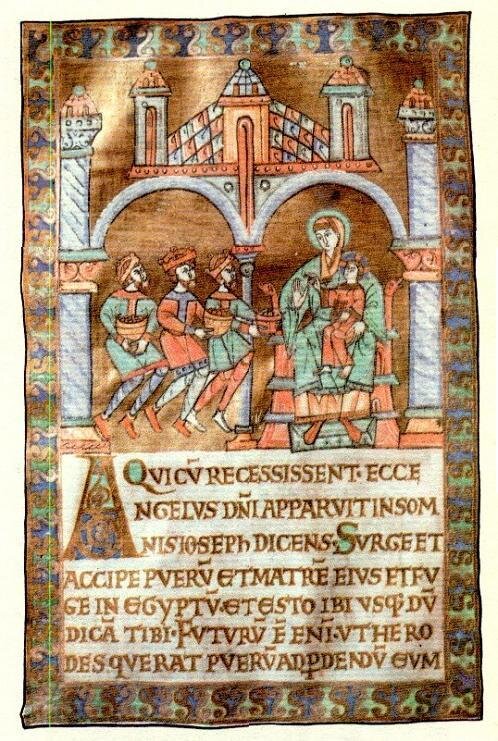 QVICV̄ RECESSISSENT· ECCE
ANGELVS DN̄I APPARVIT IN SOM
NIS IOSEPH DICENS· SVRGE ET
ACCIPE PVERV̄ ET MATRĒ EIVS ET FV
GE IN EGYPTV̄· ET ESTO IBI VSQ DV̄
DICĀ TIBI· FVTURV̄ Ē ENĪ· VT HERO
DES QVERAT PVERV̄ AD PDENDV̄ EVM